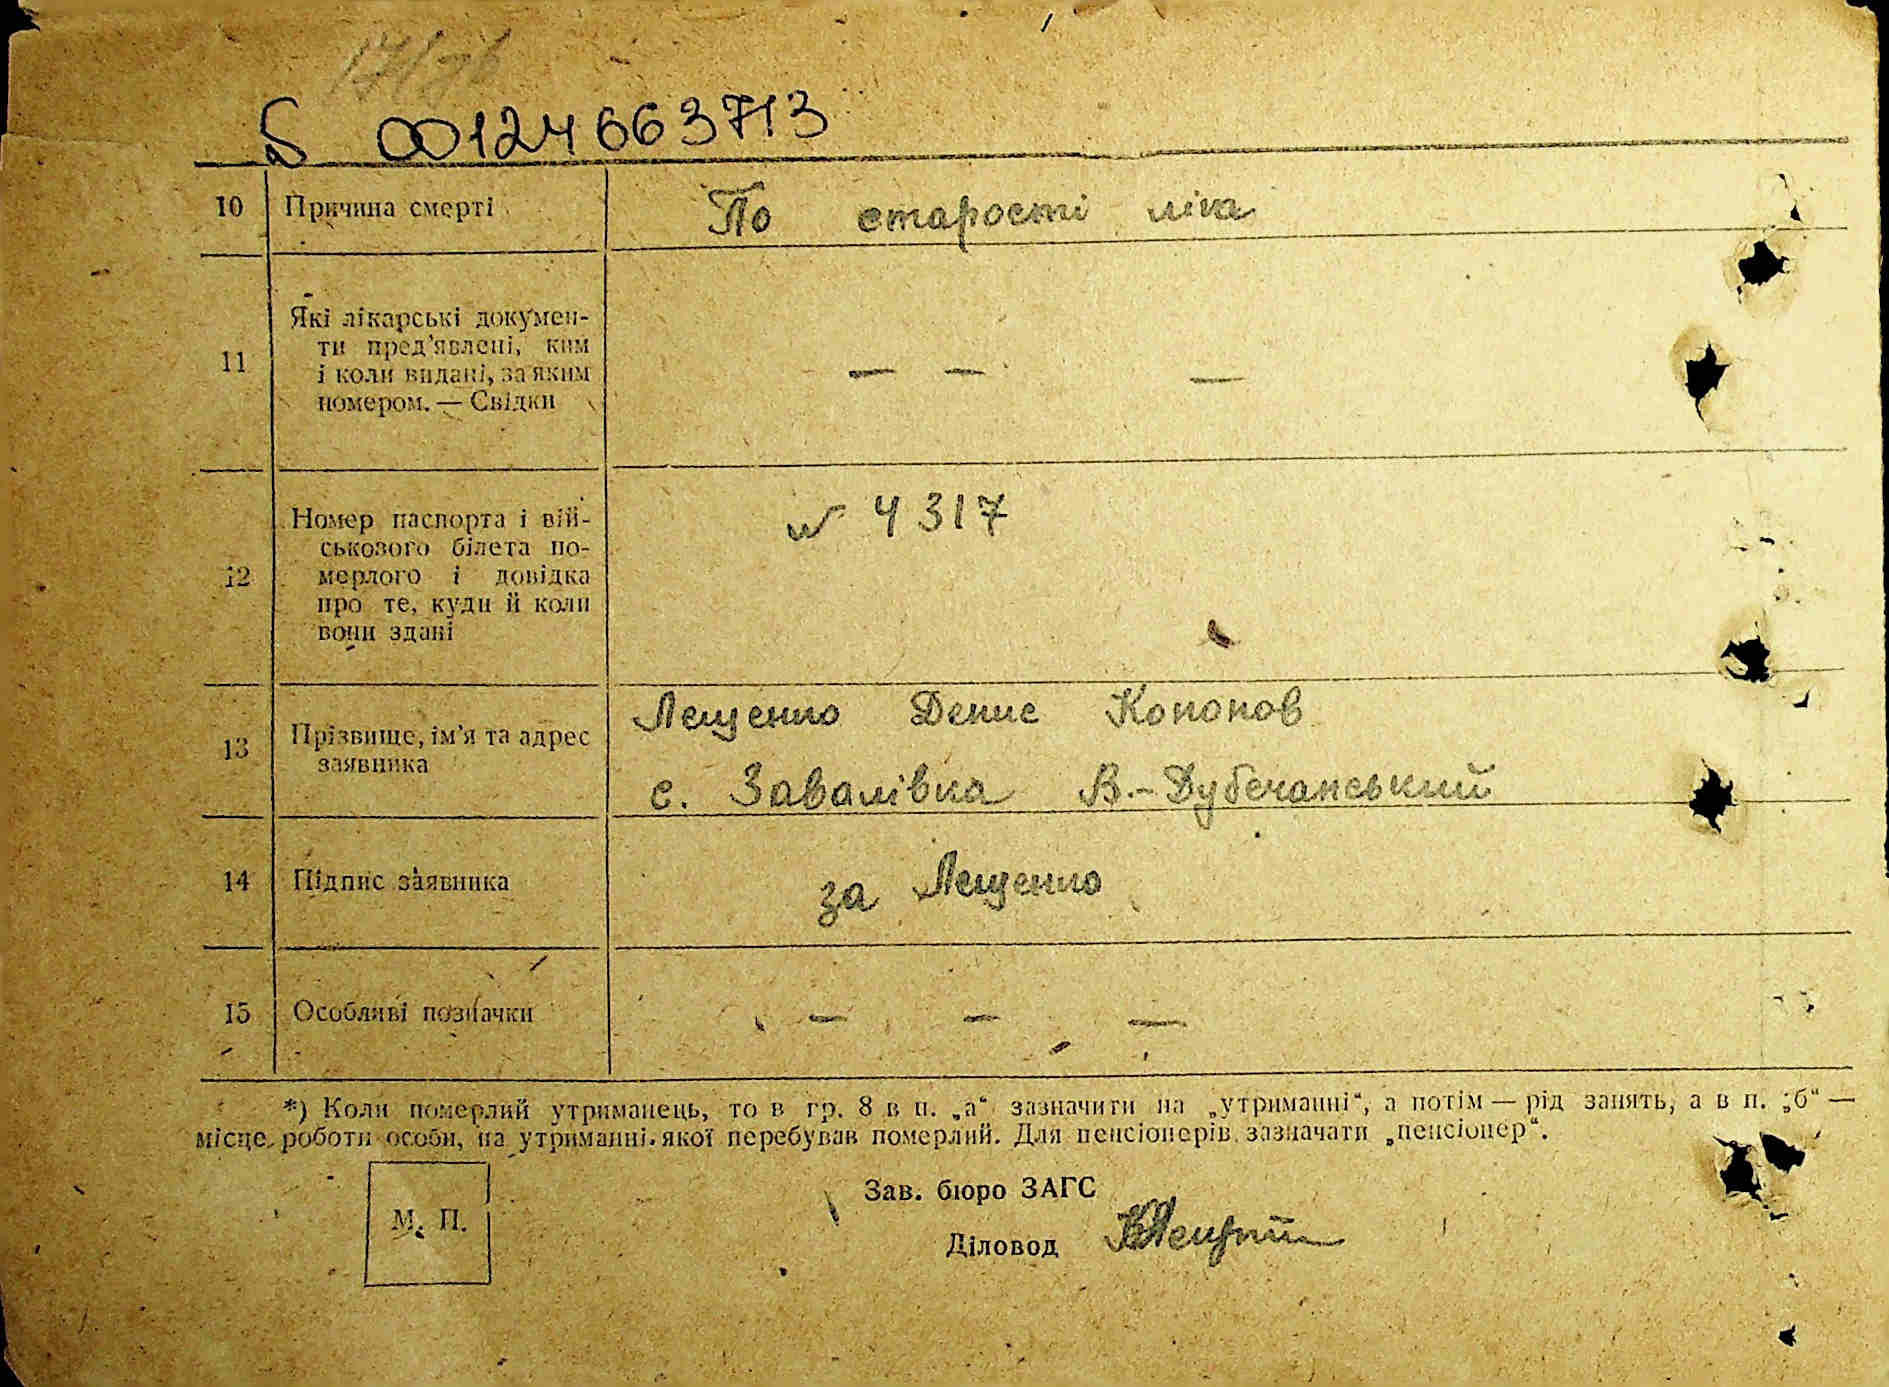 S 00124663713
10 Причина смерті По старості літа
11 Які лікарські докумен-
ти пред'явлені, ким
і коли видані, за яким
номером. — Свідки — — —
12 Номер паспорта і вій-
ськового білета по-
мерлого і довідка
про те, куди й коли
вони здані
№ 4317
13 Прізвище, ім'я та адрес
заявника
Лещенко Денис Кононов
с. Завалівка В.-Дубечанський
14 Підпис заявника за Лещенко
15 Особливі позначки — — —
*) Коли померлий утриманець, то в гр. 8 в п. „а“ зазначити на „утриманні“, а потім — рід занять, а в п. „б“ —
місце роботи особи, на утриманні якої перебував померлий. Для пенсіонерів зазначати „пенсіонер“.
М. П.
Зав. бюро ЗАГС
Діловод